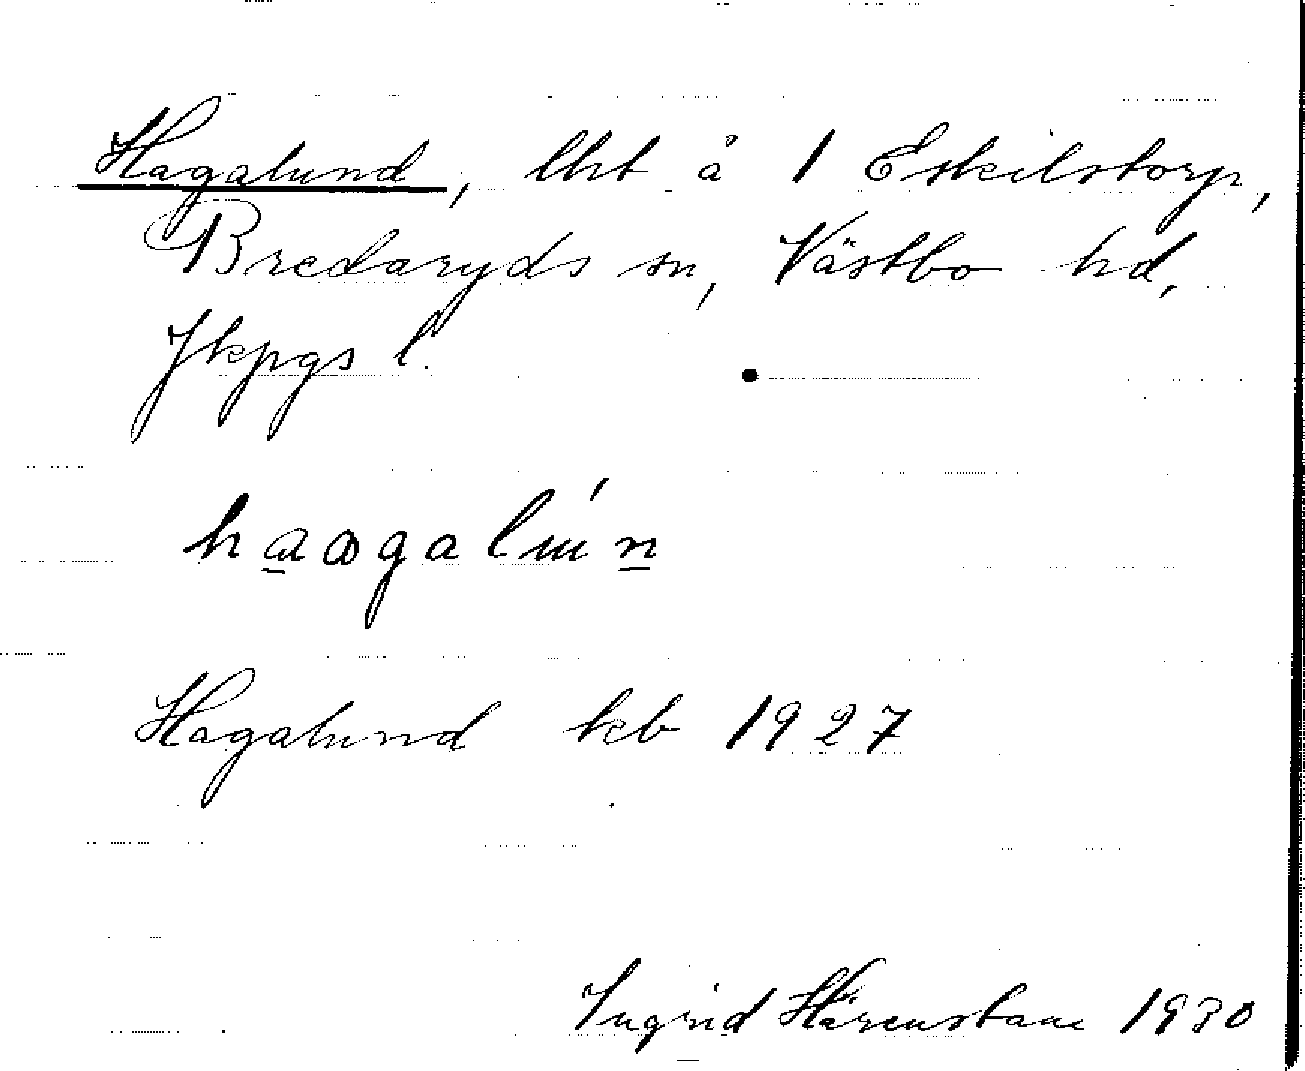 Hagalund, lht å 1 Eskilstorp,
Bredaryds sn, Västbo hd,
Jkpgs l.
Hagalund kb 1927
Ingrid Härenstam 1930